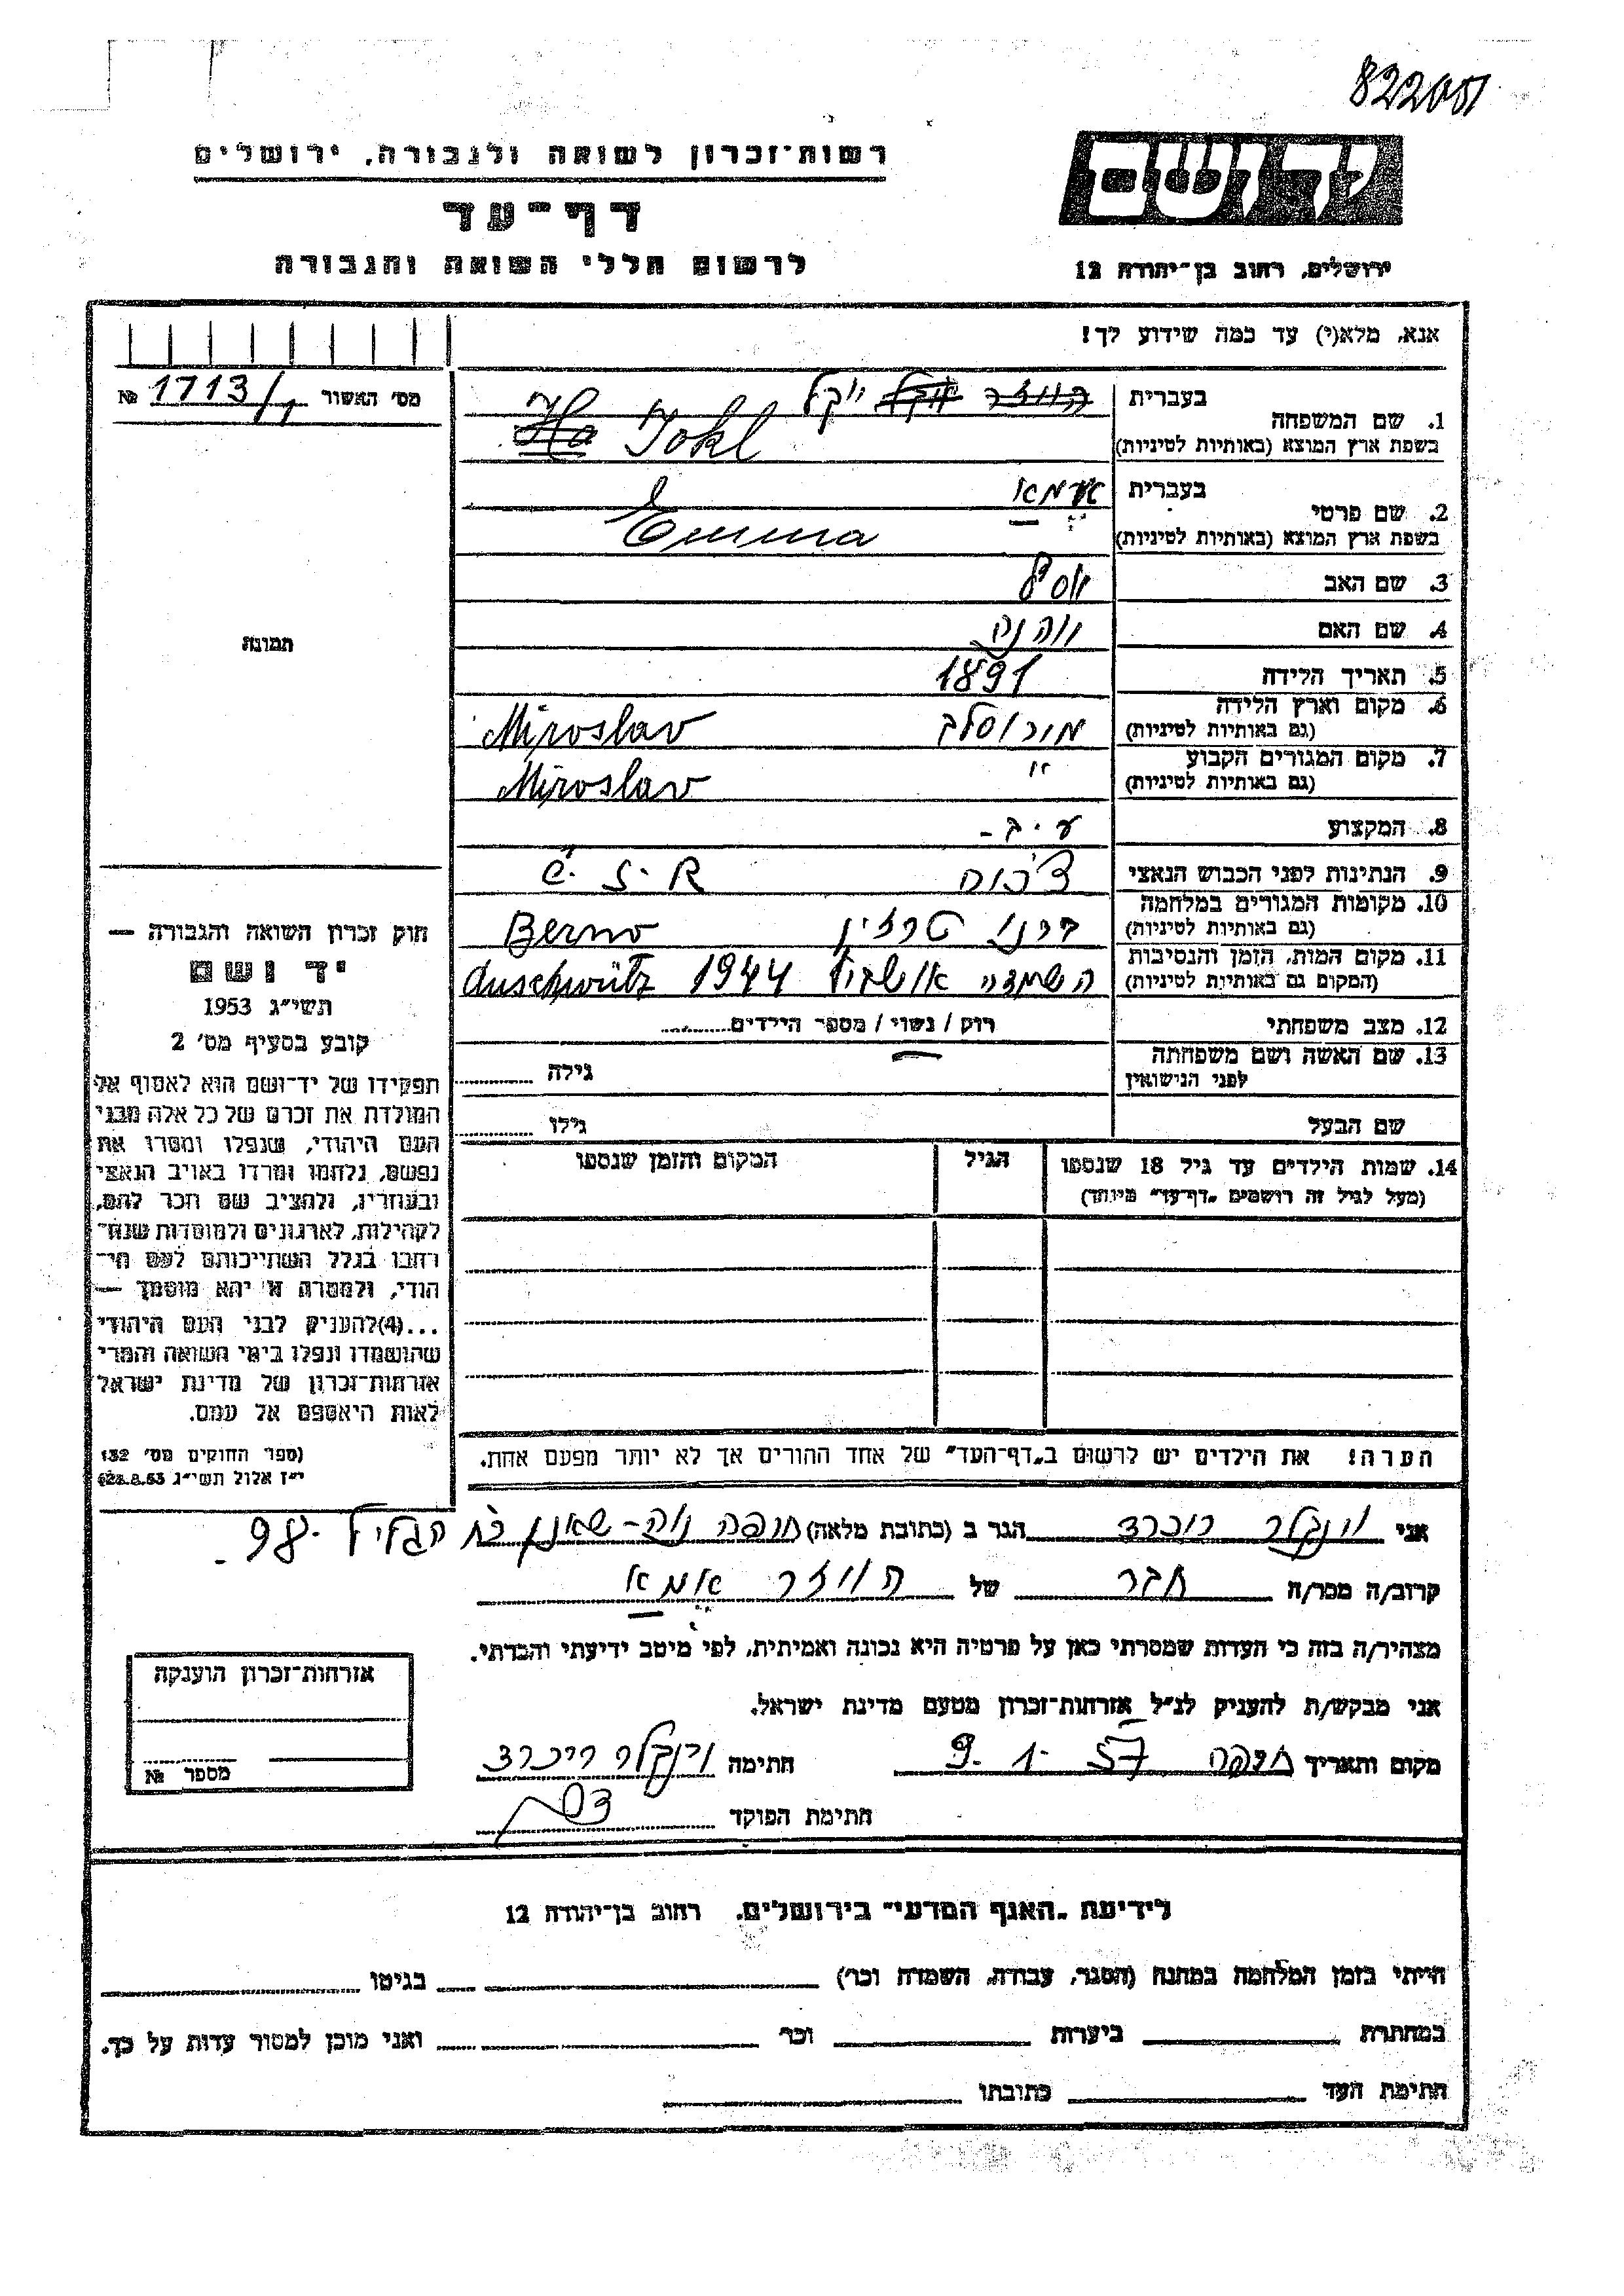 822051
רשות־זכרון לשואה ולגבורה, ירושלים
דף־עד
לרשום חללי השואה והגבורה
יד ושם
ירושלים, רחוב בן־יהודה 12
אנא, מלא(י) עד כמה שידוע לך!
מס׳ האשור 1713/1 №
תמונה
1. שם המשפחה
בעברית יוקל
בשפת ארץ המוצא (באותיות לטיניות) Jokl
2. שם פרטי
בעברית אמא
בשפת ארץ המוצא (באותיות לטיניות) Emma
3. שם האב יוסף
4. שם האם
5. תאריך הלידה 1891
6. מקום וארץ הלידה מירוסלב Miroslav
(גם באותיות לטיניות)
7. מקום המגורים הקבוע " Miroslav
(גם באותיות לטיניות)
8. המקצוע ע.ב-
9. הנתינות לפני הכבוש הנאצי צ'כוס Č.S.R
10. מקומות המגורים במלחמה ברנו טרזין Berno
(גם באותיות לטיניות)
11. מקום המות, הזמן והנסיבות השמדה אושביץ 1944 Auschwütz
(המקום גם באותיות לטיניות)
12. מצב משפחתי רוק / נשוי / מספר הילדים
13. שם האשה ושם משפחתה
לפני הנישואין גילה
שם הבעל גילו
14. שמות הילדים עד גיל 18 שנספו הגיל המקום והזמן שנספו
(מעל לגיל זה רושמים „דף־עד” מיוחד)
הערה! את הילדים יש לרשום ב„דף־העד” של אחד ההורים אך לא יותר מפעם אחת.
חוק זכרון השואה והגבורה —
יד ושם
תשי״ג 1953
קובע בסעיף מס׳ 2
תפקידו של יד־ושם הוא לאסוף אל
המולדת את זכרם של כל אלה מבני
העם היהודי, שנפלו ומסרו את
נפשם, נלחמו ומרדו באויב הנאצי
ובעוזריו, ולהציב שם וזכר להם,
לקהילות, לארגונים ולמוסדות שנח־
רבו בגלל השתייכותם לעם הי־
הודי, ולמטרה זו יהא מוסמך —
...(4) להעניק לבני העם היהודי
שהושמדו ונפלו בימי השואה והמרי
אזרחות־זכרון של מדינת ישראל
לאות היאספם אל עמם.
(ספר החוקים מס׳ 132
י״ז אלול תשי״ג 28.8.53)
אני וינקלר ריכרד הגר ב (כתובת מלאה) חיפה נוה-שאנן רח הגליל 98.
קרוב/ה מכר/ה חבר של הוזר אמא
מצהיר/ה בזה כי העדות שמסרתי כאן על פרטיה היא נכונה ואמיתית, לפי מיטב ידיעתי והכרתי.
אני מבקש/ת להעניק לנ״ל אזרחות־זכרון מטעם מדינת ישראל.
מקום ותאריך חיפה 9.1.57 חתימה וינקלר ריכרד
חתימת הפוקד
אזרחות־זכרון הוענקה
מספר №
לידיעת „האגף המדעי” בירושלים, רחוב בן־יהודה 12
הייתי בזמן המלחמה במחנה (הסגר, עבודה, השמדה וכר׳) בגיטו
במחתרת ביערות וכר ואני מוכן למסור עדות על כך.
חתימת העד כתובתו